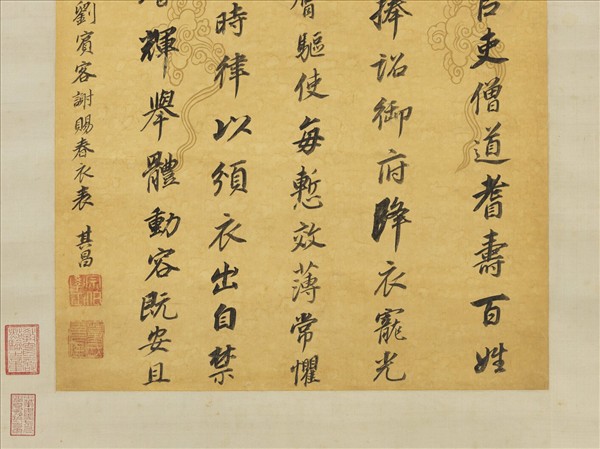 吏僧道耆壽百姓
捧詔御府降衣寵光
驅使每慙效薄常懼
時律以頒衣出自禁
輝舉體動容既安且
劉賓客謝賜春衣表 其昌